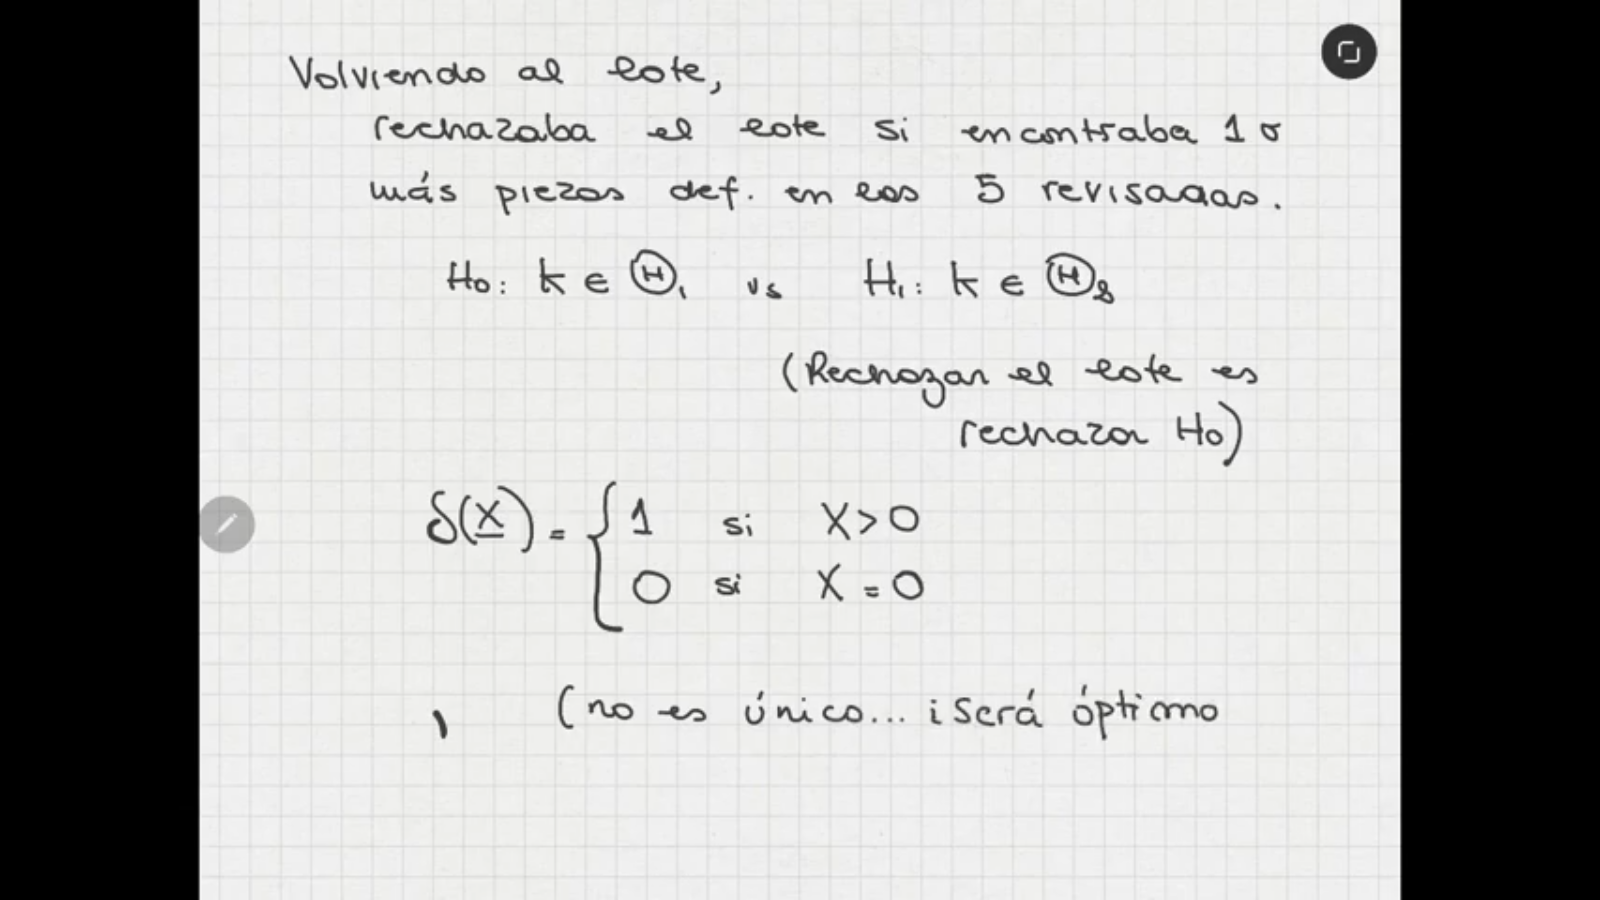 Volviendo al lote,
rechazaba el lote si encontraba 1 o
más piezas def. en las 5 revisadas.
H₀: k ∈ Θ₁ vs H₁: k ∈ Θ₂
(Rechazar el lote es
rechazar H₀)
δ(X) = { 1 si X > 0
0 si X = 0
(no es único... ¿Será óptimo